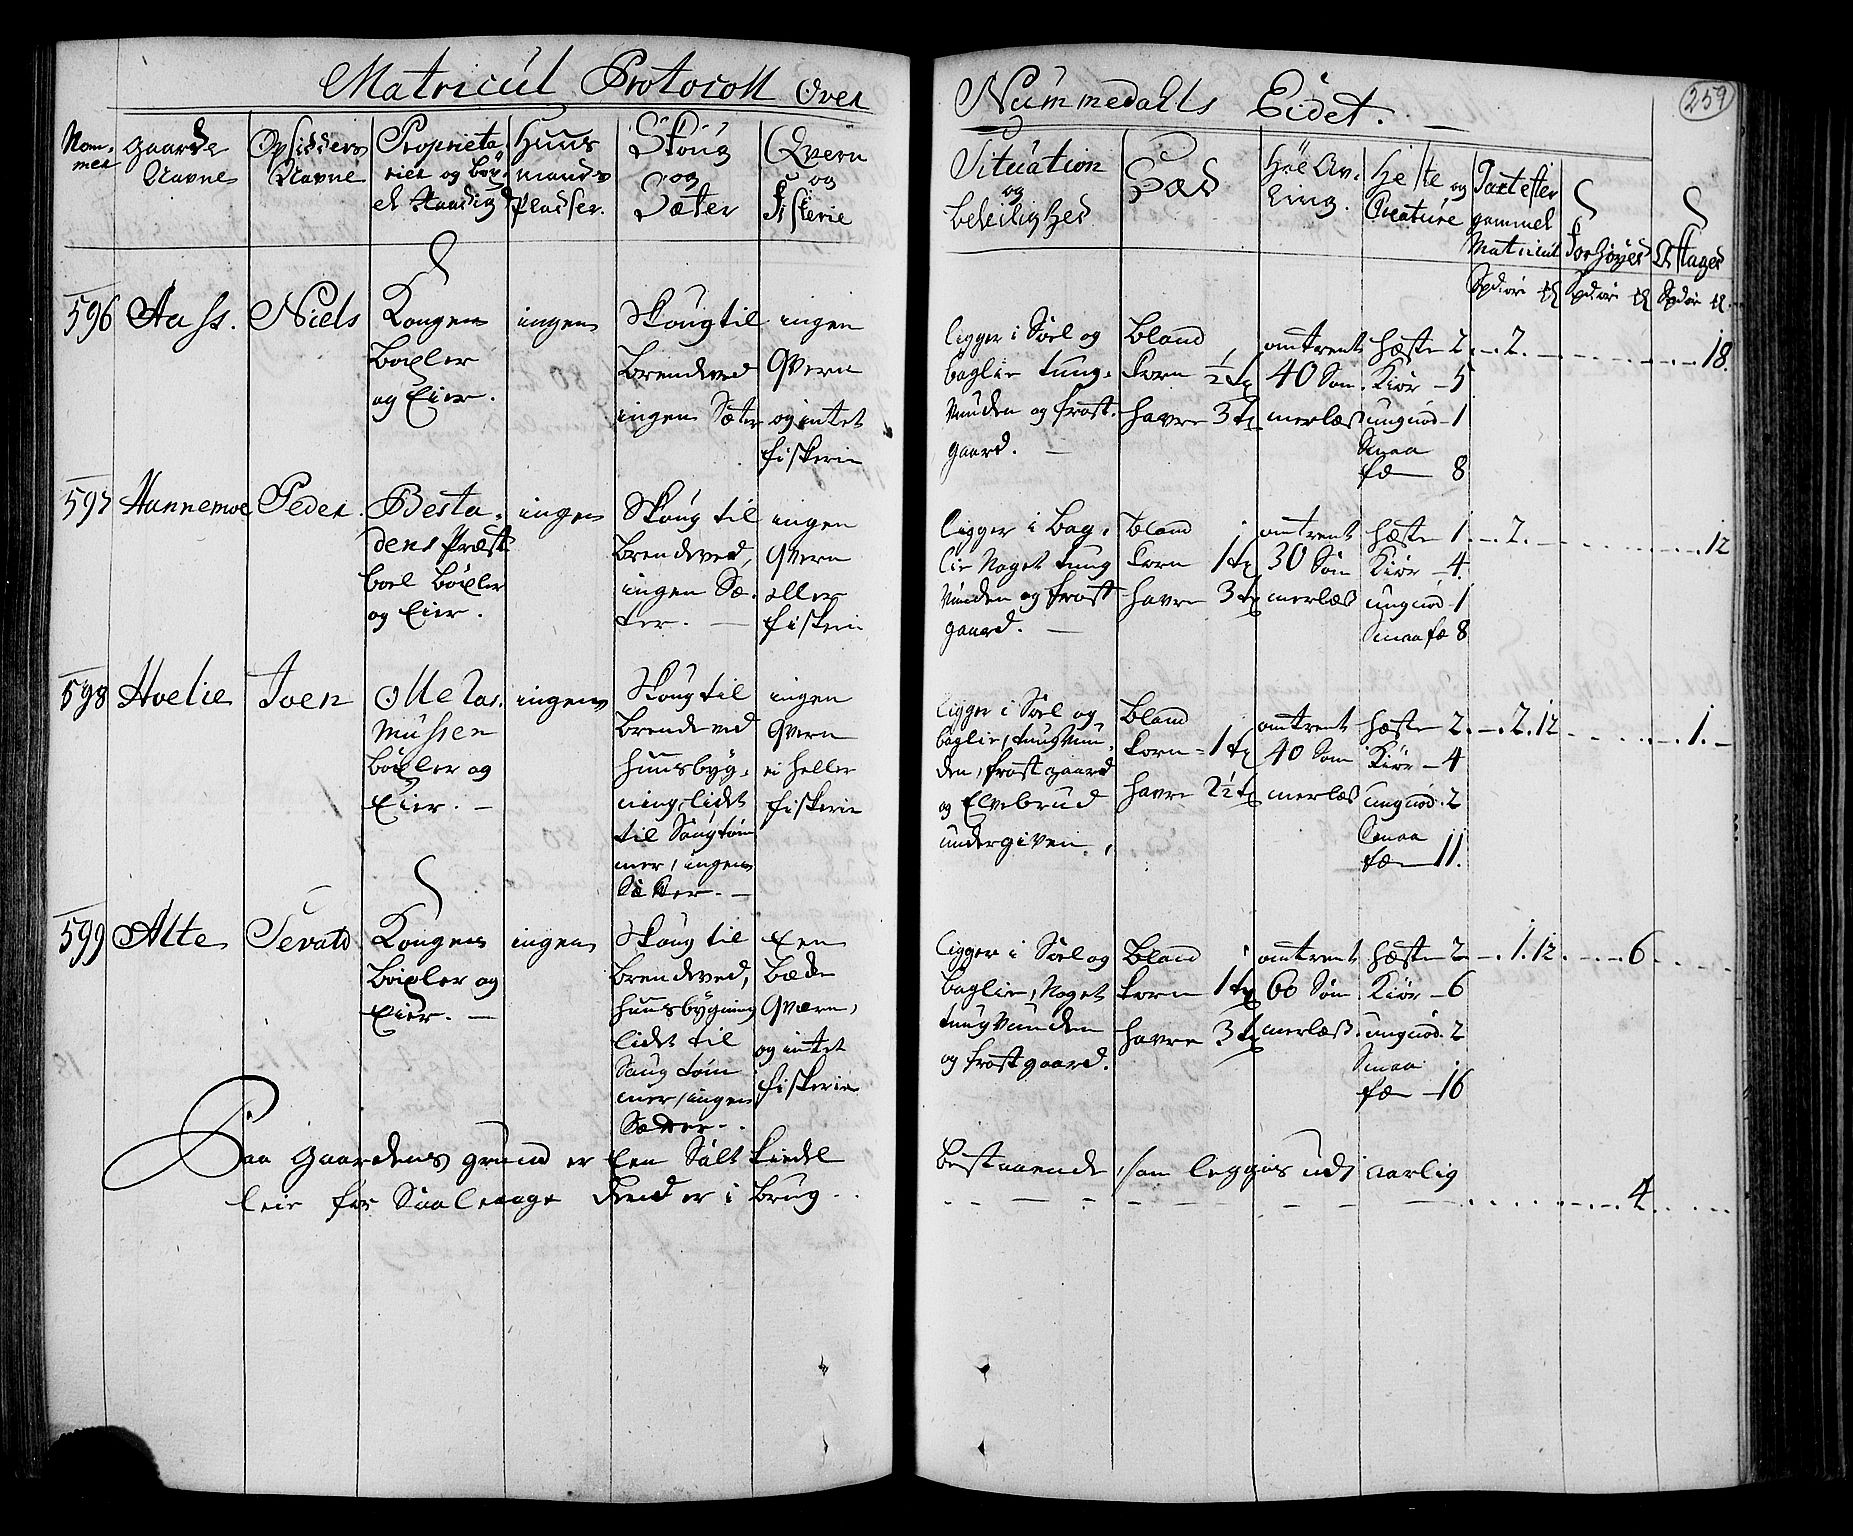 Matricul Protocoll Over Nummedalls Eidet.
259
Nommer
Gaards Navne
Opsidders Navne
Proprieta
rier og Böx
el Raadig
Huus
mands
Pladser.
Skoug
og
Sæter
Qvern
og
Fiskerie
Situation
og
beleilighed
Sæd
Höe Av
ling.
Heste og
Creature
Taxt efter
gammel
Matricul
Forhöyes
Aftages
596 Aass. Niels
Kongen
böxler
og Eier.
ingen
Skoug til
brendeved
ingen Sæter
ingen
Qvern
og intet
fiskerie
ligger i Soel og
baglie tung-
vunden og frost-
gaard.
bland
korn ½ t
havre 3 t
omtrent
40 Som
merlæs
hæste 2
Kiör 5
ungnöd 1
Smaa
fæ 8
2.
18.
597 Hannemoe Peder.
Besta-
dens Præst
boel böxler
og Eier.
ingen
Skoug til
brendeved,
ingen Sæ-
ter.
ingen
Qvern
eller
fiskerie
ligger i Bag-
lie Noget tung
vunden og frost
gaard.
bland
korn 1 t
havre 3 t
omtrent
30 Som
merlæs
hæste 1
Kiör 4.
ungnöd 1
Smaa fæ 8
2.
12
598 Hoelie Joen
Olle Ras-
mussen
böxler og
Eier.
ingen
Skoug til
brendeved
huusbyg-
ning, lidet
til Saugtöm
mer, ingen
Sæter.
ingen
Qvern
ei heller
fiskerie
ligger i Soel og
baglie, tungvun-
den, frostgaard
og Elvebrud
undergiven.
bland
korn 1 t
havre 2½ t
omtrent
40 Som
merlæs
hæste 2
Kiör 4
ungnöd 2
Smaa
fæ 11.
2. 12
1.
599 Alte Sevald
Kongen
böxler og
Eier.
ingen
Skoug til
brendeved,
huusbygning
lidet til
Saugtöm
mer, ingen
Sæter.
Een
Bæke
Qværn,
og intet
fiskerie
ligger i Soel og
baglie, Noget
tungvunden
og frostgaard.
bland
korn 1 t
havre 3 t
omtrent
60 Som
merlæs
hæste 2
Kiör 6
ungnöd 2
Smaa
fæ 16
1. 12
6
Paa Gaardens grund er Een Salt Kiedel Bestaaende, som leggis udi aarlig
leie for Saalenge dend er i brug
4